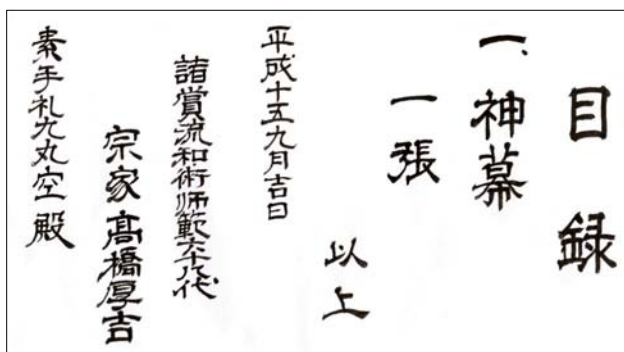 目録
一、神幕
一張
以上
平成十五九月吉日
諸賞流和術師範六十八代
宗家 髙橋厚吉
素手礼九丸空 殿